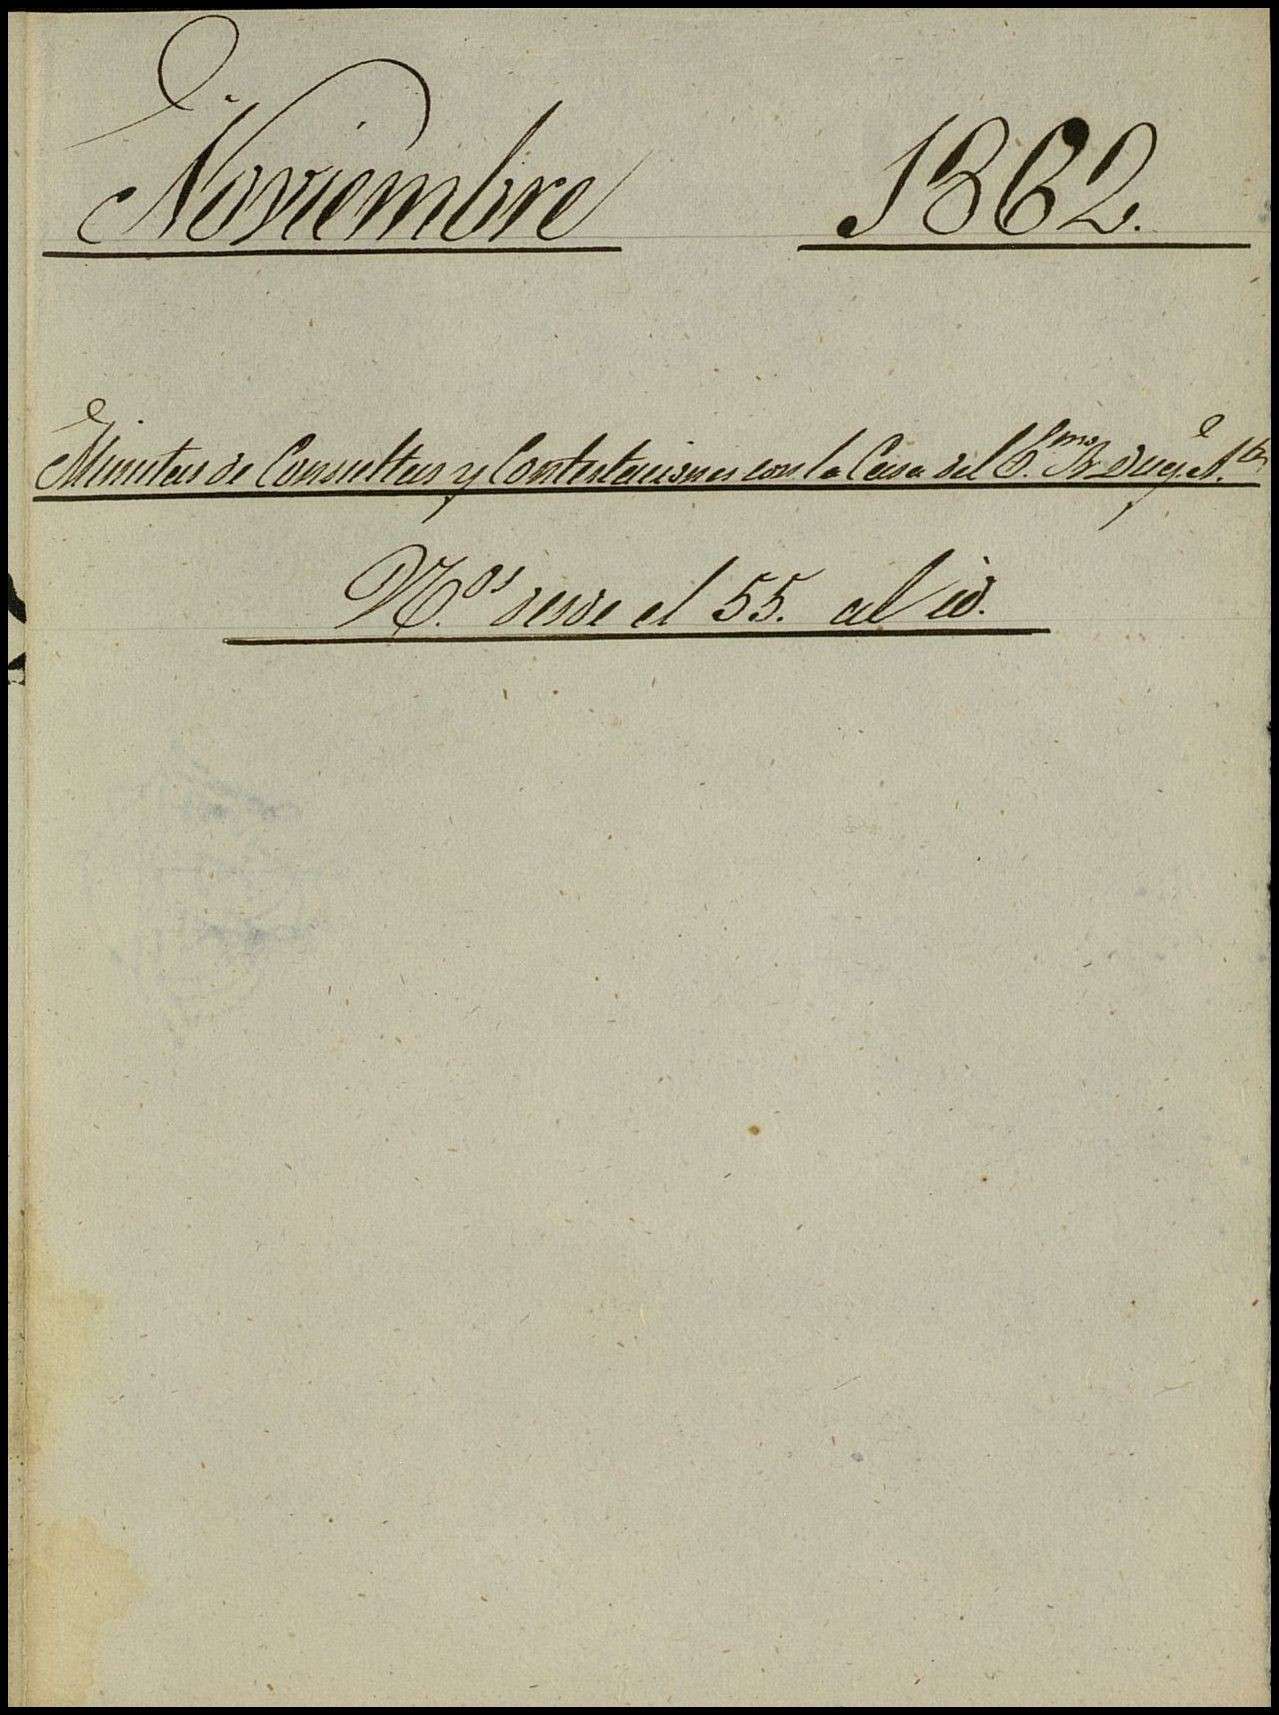 Noviembre 1862.
Minutas de Consultas y Contestaciones con la Casa del E.mo Sr Duq.e
N.os desde el 55. al id.